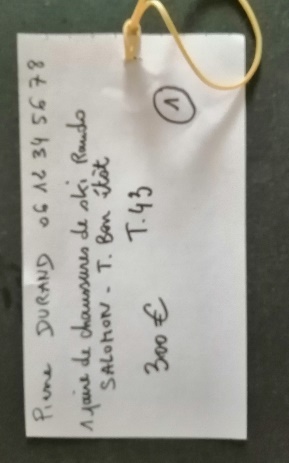 Pierre DURAND 06 12 34 56 78
1 paire de chaussures de ski Rando
SALOMON - T. Bon état
T. 43
300 €
1